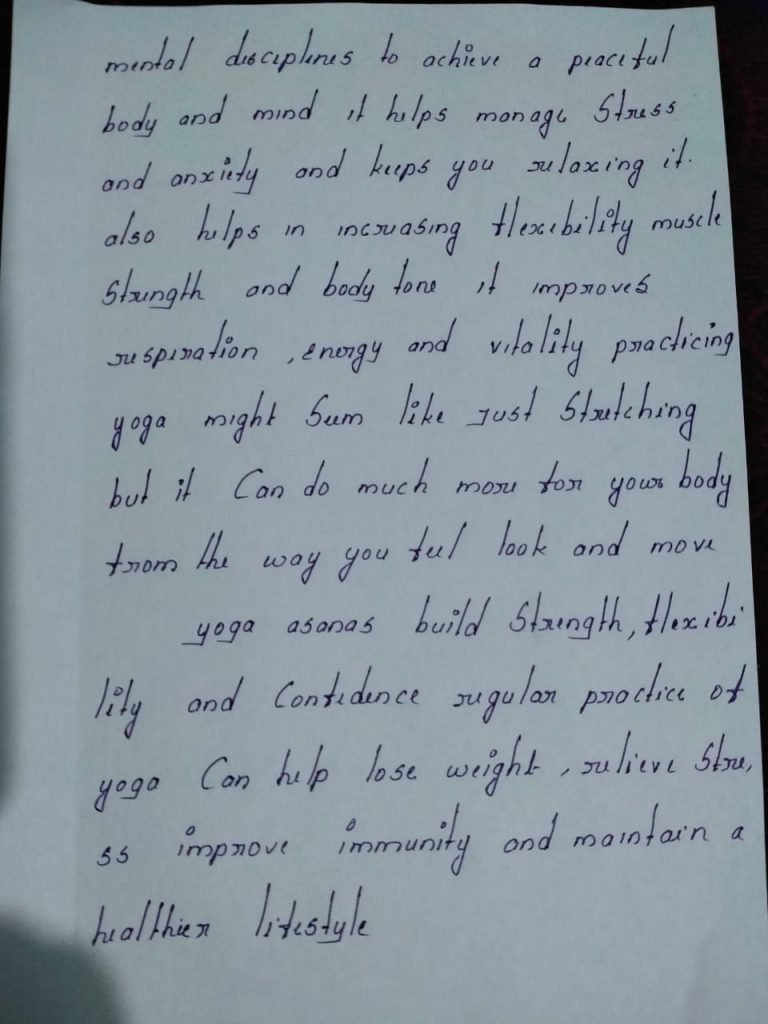 mental disciplines to achieve a peaceful
body and mind it helps manage Stress
and anxiety and keeps you relaxing it.
also helps in increasing flexibility muscle
Strength and body tone it improves
respiration , energy and vitality practicing
yoga might Seem like just Stretching
but it Can do much more for your body
from the way you feel look and move
yoga asanas build Strength, flexibi
lity and Confidence regular practice of
yoga Can help lose weight , relieve Stre,
ss improve immunity and maintain a
healthier lifestyle